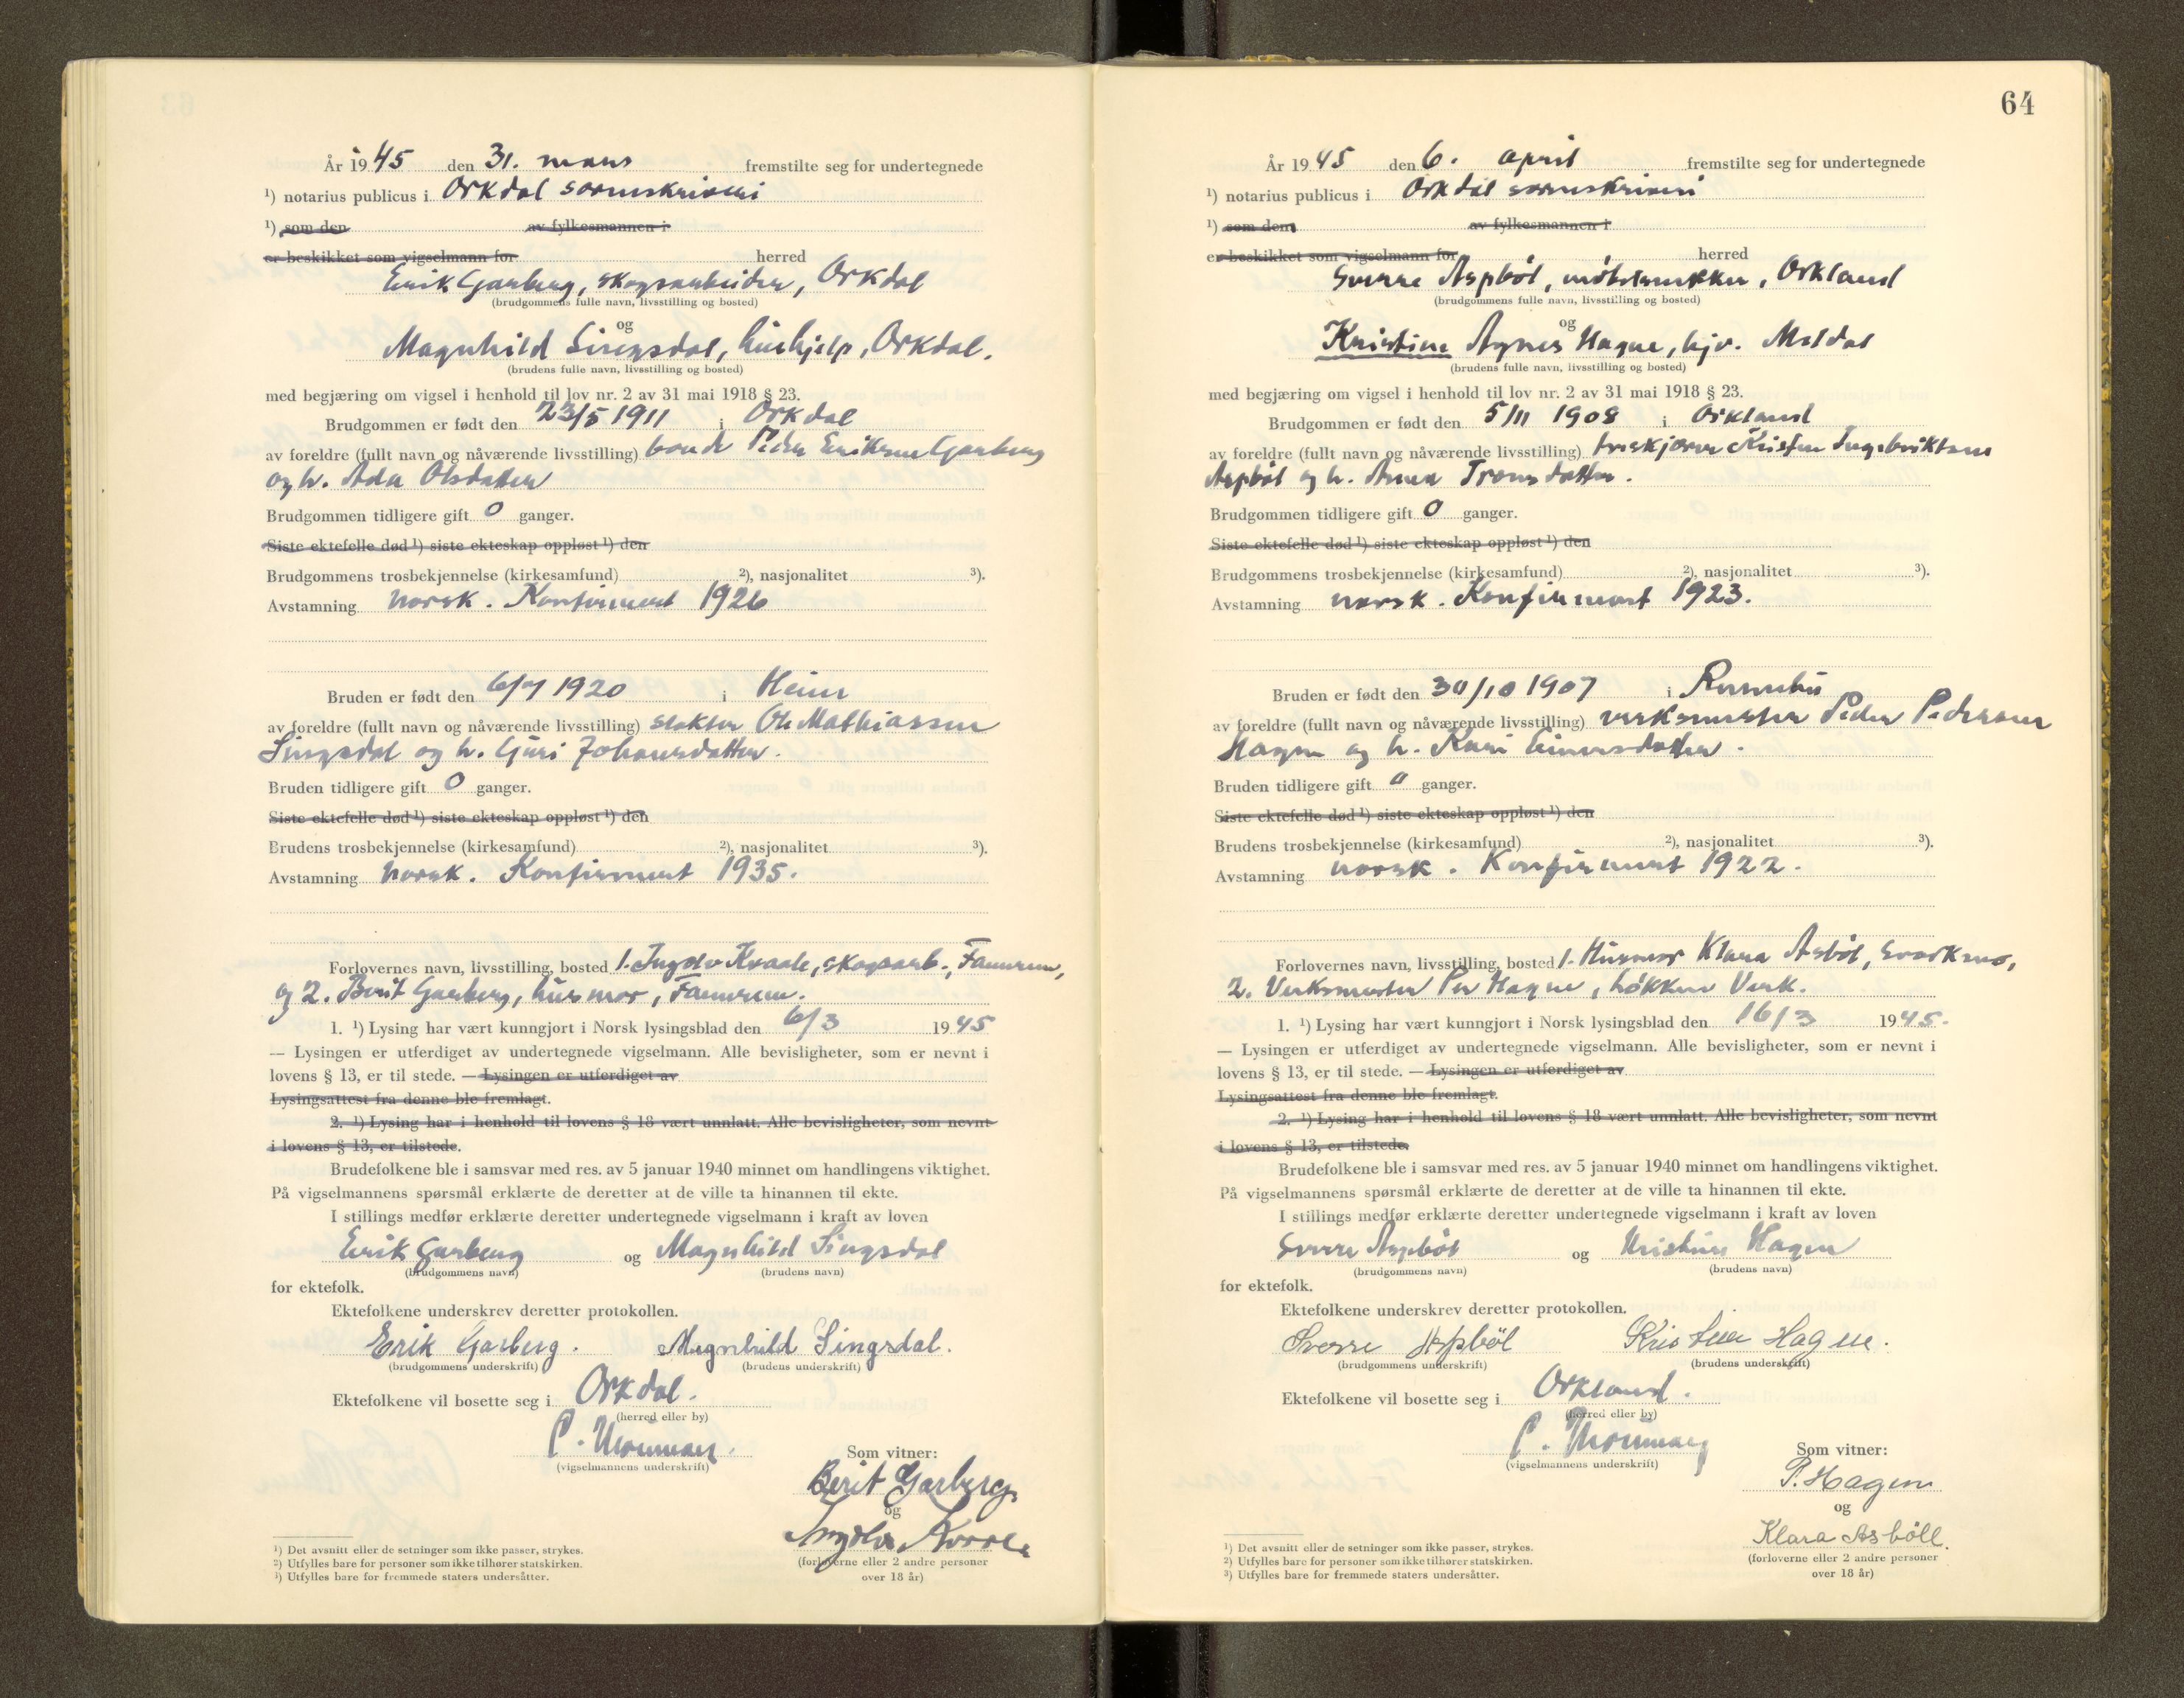 År 1945 den 31. mars fremstilte seg for undertegnede
¹) notarius publicus i Orkdal sorenskriveri
¹) som den av fylkesmannen i
er beskikket som vigselmann for herred
Erik Garberg, skogsarbeider, Orkdal
(brudgommens fulle navn, livsstilling og bosted)
og
Magnhild Singsdal, hushjelp, Orkdal.
(brudens fulle navn, livsstilling og bosted)
med begjæring om vigsel i henhold til lov nr. 2 av 31 mai 1918 § 23.
Brudgommen er født den 23/5 1911 i Orkdal
av foreldre (fullt navn og nåværende livsstilling) bonde Peder Eriksen Garberg
og h. Ada Olsdatter
Brudgommen tidligere gift 0 ganger.
Siste ektefelle død ¹) siste ekteskap oppløst ¹) den
Brudgommens trosbekjennelse (kirkesamfund) ²), nasjonalitet ³).
Avstamning norsk. Konfirmert 1926
Bruden er født den 1920 i Heim
av foreldre (fullt navn og nåværende livsstilling) slakter Ole Mathiassen
Singsdal og h. Guri Johansdatter.
Bruden tidligere gift 0 ganger.
Siste ektefelle død ¹) siste ekteskap oppløst ¹) den
Brudens trosbekjennelse (kirkesamfund) ²), nasjonalitet ³).
Avstamning norsk. Konfirmert 1935.
Forlovernes navn, livsstilling, bosted 1. skogsarb., Fannrem,
og 2. Berit Garberg, husmor, Fannrem.
1. ¹) Lysing har vært kunngjort i Norsk lysingsblad den 6/3 1945
— Lysingen er utferdiget av undertegnede vigselmann. Alle bevisligheter, som er nevnt i
lovens § 13, er til stede. — Lysingen er utferdiget av
Lysingsattest fra denne ble fremlagt.
2. ¹) Lysing har i henhold til lovens § 18 vært unnlatt. Alle bevisligheter, som nevnt
i lovens § 13, er tilstede.
Brudefolkene ble i samsvar med res. av 5 januar 1940 minnet om handlingens viktighet.
På vigselmannens spørsmål erklærte de deretter at de ville ta hinannen til ekte.
I stillings medfør erklærte deretter undertegnede vigselmann i kraft av loven
Erik Garberg og Magnhild Singsdal
(brudgommens navn) (brudens navn)
for ektefolk.
Ektefolkene underskrev deretter protokollen.
Erik Garberg. Magnhild Singsdal.
(brudgommens underskrift) (brudens underskrift)
Ektefolkene vil bosette seg i Orkdal.
(herred eller by)
(vigselmannens underskrift)
Som vitner:
Berit Garberg
og
(forloverne eller 2 andre personer
over 18 år)
¹) Det avsnitt eller de setninger som ikke passer, strykes.
²) Utfylles bare for personer som ikke tilhører statskirken.
³) Utfylles bare for fremmede staters undersåtter.
64
År 1945 den 6. april fremstilte seg for undertegnede
¹) notarius publicus i Orkdal sorenskriveri
¹) som den av fylkesmannen i
er beskikket som vigselmann for herred
Sverre Aspbøl, møbelsnekker, Orkland
(brudgommens fulle navn, livsstilling og bosted)
og
Kristine Agnes Hagen, hjv. Meldal
(brudens fulle navn, livsstilling og bosted)
med begjæring om vigsel i henhold til lov nr. 2 av 31 mai 1918 § 23.
Brudgommen er født den 5/11 1908 i Orkland
av foreldre (fullt navn og nåværende livsstilling) Kristen Ingebriktsen
Aspbøl og h. Anna Tronsdatter.
Brudgommen tidligere gift 0 ganger.
Siste ektefelle død ¹) siste ekteskap oppløst ¹) den
Brudgommens trosbekjennelse (kirkesamfund) ²), nasjonalitet ³).
Avstamning norsk. Konfirmert 1923.
Bruden er født den 30/10 1907 i
av foreldre (fullt navn og nåværende livsstilling) verksmester Peder Pedersen
Hagen og h. Kari Einarsdatter.
Bruden tidligere gift 0 ganger.
Siste ektefelle død ¹) siste ekteskap oppløst ¹) den
Brudens trosbekjennelse (kirkesamfund) ²), nasjonalitet ³).
Avstamning norsk. Konfirmert 1922.
Forlovernes navn, livsstilling, bosted 1. Husmor Klara Asbøl, Svorkmo,
2. Verksmester Per Hagen, Løkken Verk.
1. ¹) Lysing har vært kunngjort i Norsk lysingsblad den 16/3 1945.
— Lysingen er utferdiget av undertegnede vigselmann. Alle bevisligheter, som er nevnt i
lovens § 13, er til stede. — Lysingen er utferdiget av
Lysingsattest fra denne ble fremlagt.
2. ¹) Lysing har i henhold til lovens § 18 vært unnlatt. Alle bevisligheter, som nevnt
i lovens § 13, er tilstede.
Brudefolkene ble i samsvar med res. av 5 januar 1940 minnet om handlingens viktighet.
På vigselmannens spørsmål erklærte de deretter at de ville ta hinannen til ekte.
I stillings medfør erklærte deretter undertegnede vigselmann i kraft av loven
Sverre Aspbøl og Kristine Hagen
(brudgommens navn) (brudens navn)
for ektefolk.
Ektefolkene underskrev deretter protokollen.
Sverre Aspböl Kristine Hagen.
(brudgommens underskrift) (brudens underskrift)
Ektefolkene vil bosette seg i Orkland.
(herred eller by)
(vigselmannens underskrift)
Som vitner:
P. Hagen
og
Klara Asböll.
(forloverne eller 2 andre personer
over 18 år)
¹) Det avsnitt eller de setninger som ikke passer, strykes.
²) Utfylles bare for personer som ikke tilhører statskirken.
³) Utfylles bare for fremmede staters undersåtter.